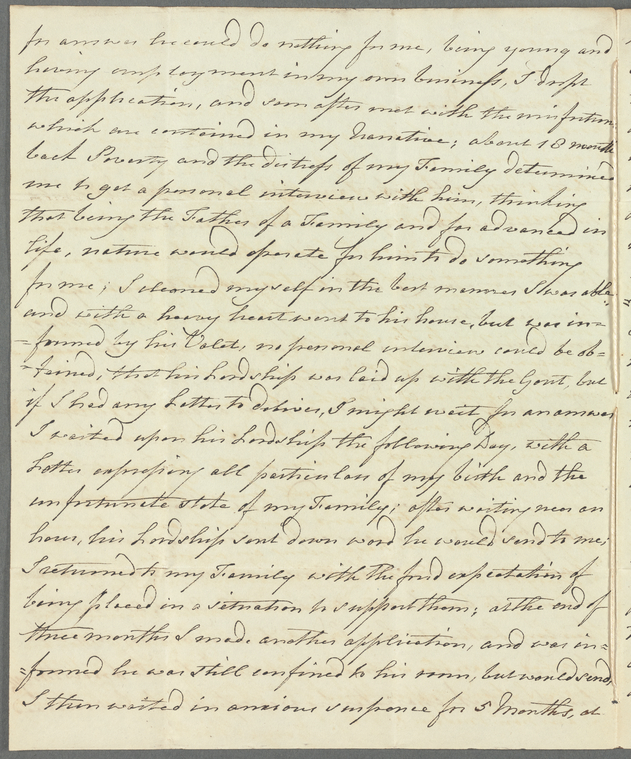 for answer he could do nothing for me, being young and
having employment in my own business, I dropt
the application, and soon after met with the misfortunes
which are contained in my Narative; about 18 months
back Poverty and the distress of my Family determined
me to get a personal interview with him, thinking
that being the Father of a Family and far advanced in
life, nature would operate for him to do something
for me; I cleaned myself in the best manner I was able,
and with a heavy heart went to his house, but was in=
=formed by his Valet, no personal interview could be ob=
=tained, that his Lordship was laid up with the Gout, but
if I had any Letter to deliver, I might wait for an answer
I waited upon his Lordship the following Day, with a
Letter expressing all particulars of my birth and the
unfortunate state of my Family; after waiting near an
hour, his Lordship sent down word he would send to me;
I returned to my Family with the fond expectation of
being placed in a situation to support them; at the end of
three months I made another application, and was in=
=formed he was still confined to his room, but would send,
I then waited in anxious suspence for 5 Months, at